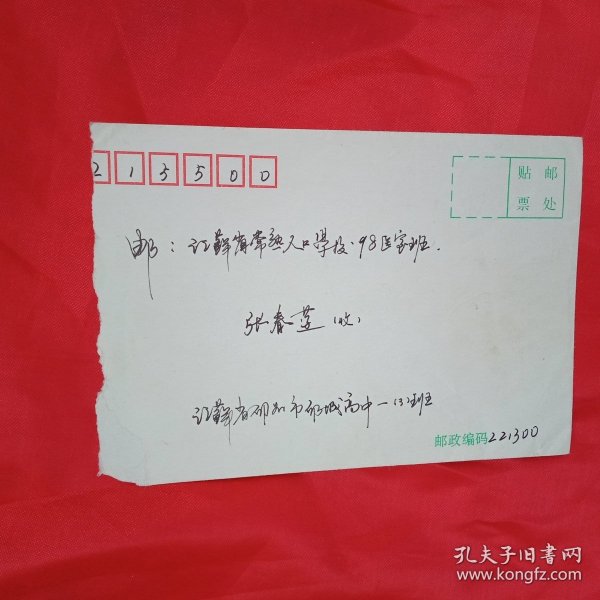 215500
贴邮
票处
邮：江苏省常熟人口学校·98医宣班.
张春莲（收）
江苏省邳州市邳城高中一（3）班
邮政编码221300
孔夫子旧书网
www.kongfz.com